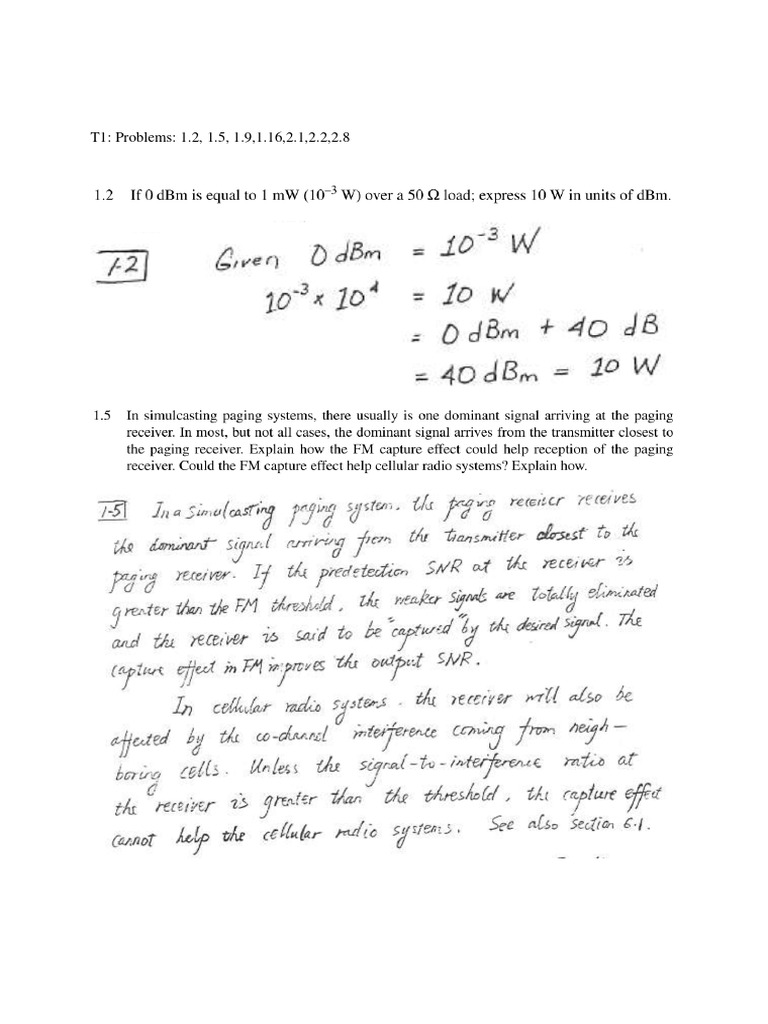 T1: Problems: 1.2, 1.5, 1.9,1.16,2.1,2.2,2.8
1.2 If 0 dBm is equal to 1 mW (10⁻³ W) over a 50 Ω load; express 10 W in units of dBm.
1-2 Given 0 dBm = 10⁻³ W
10⁻³ x 10⁴ = 10 W
= 0 dBm + 40 dB
= 40 dBm = 10 W
1.5 In simulcasting paging systems, there usually is one dominant signal arriving at the paging
receiver. In most, but not all cases, the dominant signal arrives from the transmitter closest to
the paging receiver. Explain how the FM capture effect could help reception of the paging
receiver. Could the FM capture effect help cellular radio systems? Explain how.
1-5 In a simulcasting paging system, the paging receiver receives
the dominant signal arriving from the transmitter closest to the
paging receiver. If the predetection SNR at the receiver is
greater than the FM threshold, the weaker signals are totally eliminated
and the receiver is said to be "captured" by the desired signal. The
capture effect in FM improves the output SNR.
In cellular radio systems, the receiver will also be
affected by the co-channel interference coming from neigh-
boring cells. Unless the signal-to-interference ratio at
the receiver is greater than the threshold, the capture effect
cannot help the cellular radio systems. See also section 6.1.